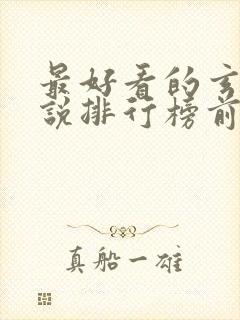 最好看的玄
說排行榜前
真船一雄